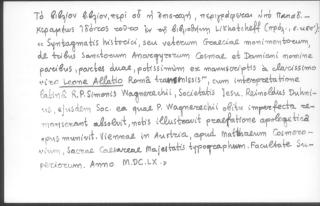 Τὸ βιβλίον βιβλίον, περὶ οὗ ἡ ἐπιγραφή, περιγράφεται ὑπὸ Παπαδ.-
Κεραμέως
βιβλιοθήκῃ Likhatcheff
« Syntagmatis historici, seu veterum Graeciae monimentorum,
de tribus Sanctorum Anargyrorum Cosmae et Damiani nomine
paribus, partes duae, potissimum ex manuscriptis a clarissimo
viro Leone Allatio Româ transmissis", cum interpretatione
latinâ R.P. Simonis Wagnereckii, Societatis Jesu. Reinoldus Dehni-
us, ejusdem Soc. ea quae P. Wagnereckii obitu imperfecta re-
manserant absolvit, notis illustravit praefatione apologetica
opus munivit. Viennae in Austria, apud Matthaeum Cosmero-
vium, Sacrae Caesareae Majestatis typographum. Facultate Su-
periorum. Anno M.DC.LX. »